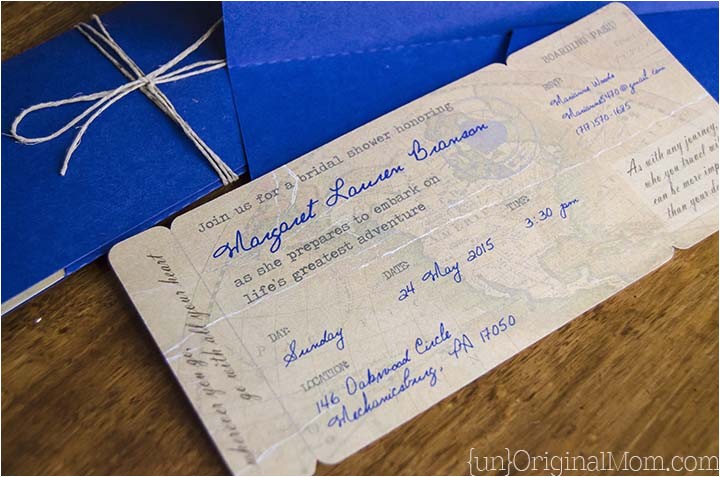 wherever you go,
go with all your heart
Join us for a bridal shower honoring
Margaret Lauren Branson
as she prepares to embark on
life's greatest adventure
DAY:
Sunday
DATE:
24 May 2015
TIME:
3:30 pm
LOCATION:
146 Oakwood Circle
Mechanicsburg, PA 17050
BOARDING PASS
RSVP:
Marianne Woods
(717)570-1625
As with any journey,
who you travel with
can be more
than your
{un}OriginalMom.com